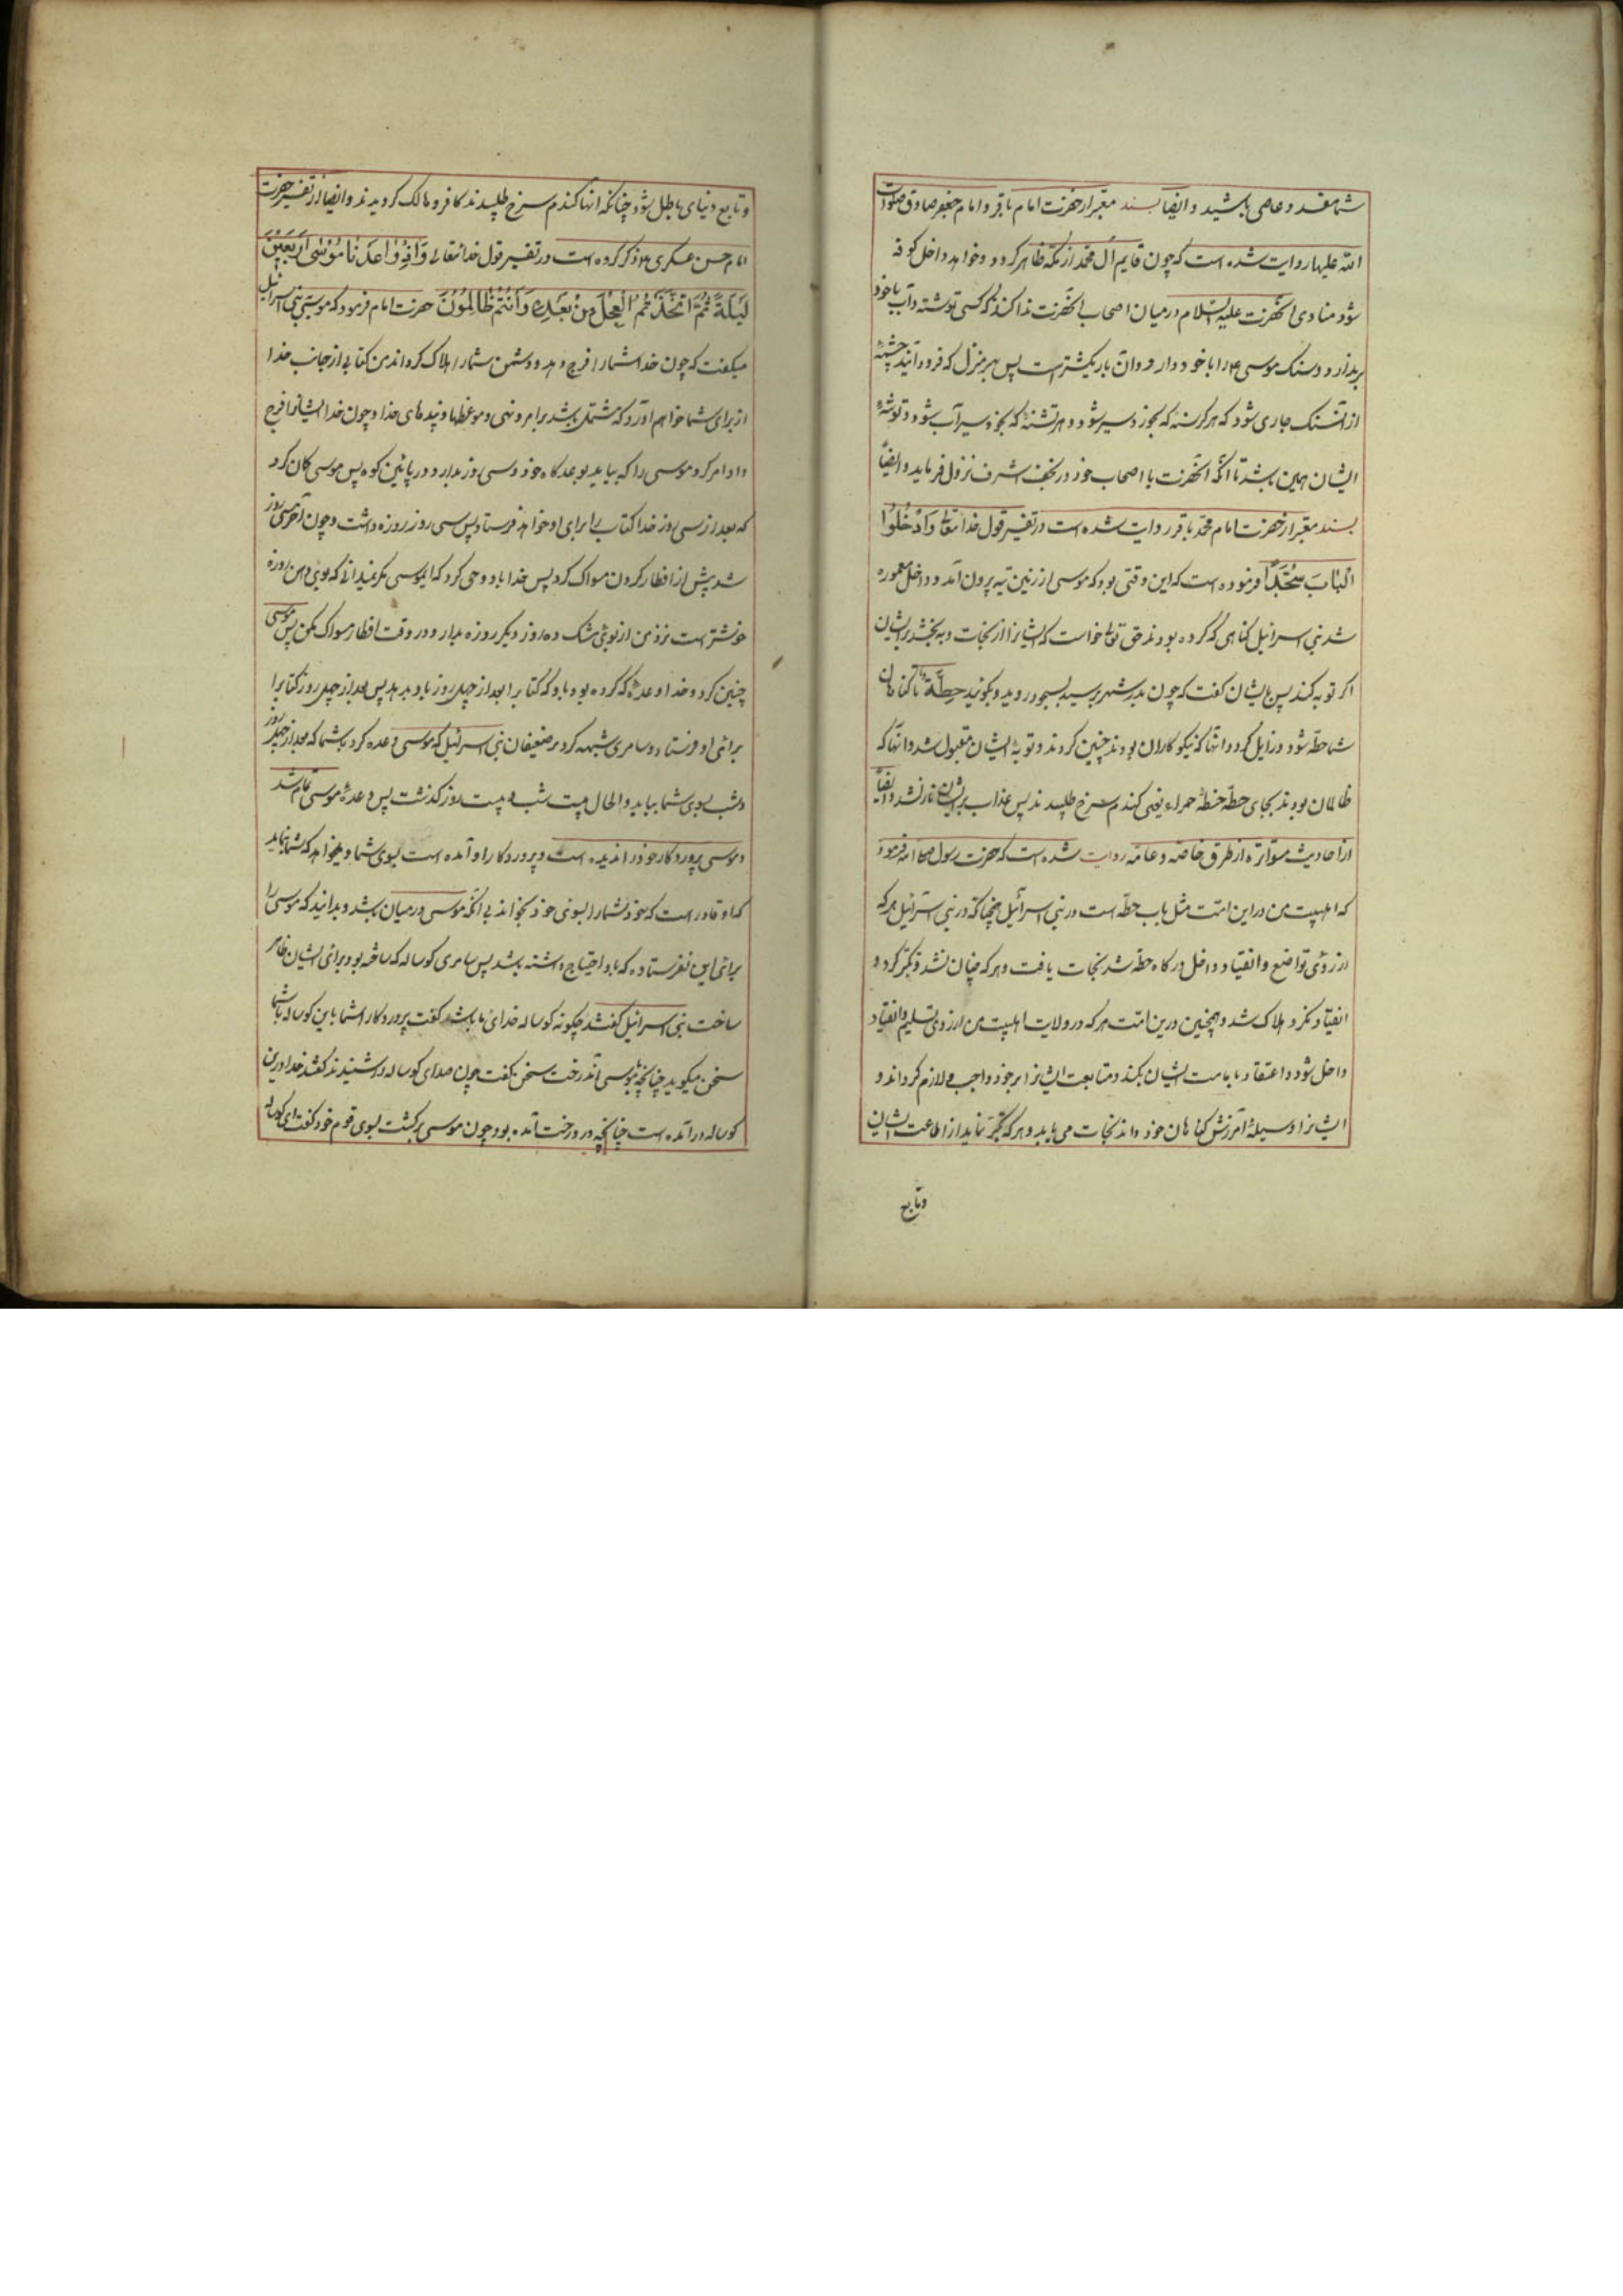 شما مفسد و عاصی باشید و ایضا بسند معتبر از حضرت امام باقر و امام جعفر صادق صلوات
الله علیهما روایت شده است که چون قایم آل محمد از مکه ظاهر کردد و خواهد داخل کوفه
شود منادی آنحضرت علیه السلام در میان اصحاب آنحضرت ندا کند که کسی توشه و آب با خود
برندارد و سنک موسی ع را با خود دارد و آن بار یکشتر است پس بهر منزل که فرود آیند چشمۀ
از آن سنک جاری شود که هر کرسنه که بخورد سیر شود و هر تشنۀ که بخورد سیرآب شود و توشۀ
ایشان همین باشد تا آنکه آنحضرت با اصحاب خود در نجف اشرف نزول فرماید و ایضاً
بسند معتبر از حضرت امام محمد باقر روایت شده است در تفسیر قول خدایتعالی وَادْخُلُوا
الْبٰابَ سُجَّدًا فرموده است که این وقتی بود که موسی از زمین تیه بیرون آمد و داخل معموره
شد بنی اسرائیل کناهی که کرده بودند حق تعالی خواست که ایشانرا از نجات دهد به بخشد بر ایشان
اکر توبه کنند پس بایشان کفت که چون بدر شهر برسید بسجود روید و بکوئید حِطَّة تا کناهان
شما حطه شود و زایل کردد و آنها که نیکوکاران بودند چنین کردند و توبۀ ایشان مقبول شد و آنها که
ظالمان بودند بجای حطه حنطۀ حمراء یعنی کندم سرخ طلبیدند پس عذاب بر ایشان نازل شد و ایضاً
از احادیث متواتره از طرق خاصه و عامه روایت شده است که حضرت رسول ص فرمود
که اهلبیت من در این امت مثل باب حطه است در بنی اسرائیل همچنانکه در بنی اسرائیل هر که
از روی تواضع و انقیاد داخل درکاه حطه شد نجات یافت و هر که چنان نشد و تکبر کرد و
انقیاد نکرد هلاک شد و همچنین در ین امت هر که در ولایت اهلبیت من از روی تسلیم و انقیاد
داخل شود و اعتقاد بامامت ایشان بکند و متابعت ایشانرا بر خود واجب و لازم کرداند و
ایشانرا وسیلۀ آمرزش کناهان خود داند نجات می یابد و هر که تکبر نماید از اطاعت ایشان
وتابع
و تابع دنیای باطل شود چنانکه آنها کندم سرخ طلبیدند کافر و هالک کردیدند و ایضا از تفسیر حضرت
امام حسن عسکری ع ذکر کرده است در تفسیر قول خدایتعالی وَاِذْ وٰاعَدْنٰا مُوْسٰی اَرْبَعِیْنَ
لَیْلَةً ثُمَّ اتَّخَذْتُمُ الْعِجْلَ مِنْ بَعْدِهٖ وَاَنْتُمْ ظٰالِمُوْنَ حضرت امام فرمود که موسی ببنی اسرائیل
میکفت که چون خدا شما را فرج دهد و دشمن شما را هلاک کرداند من کتابی از جانب خدا
از برای شما خواهم آورد که مشتمل باشد بر امر و نهی و موعظها و پندهای خدا و چون خدا ایشانرا فرج
داد امر کرد موسی را که بیاید بوعده کاه خود و سی روز بدارد در پائین کوه پس موسی کمان کرد
که بعد از سی روز خدا کتاب را برای او خواهد فرستاد پس سی روز روزه داشت و چون آخر سی روز
شد پیش از افطار کردن مسواک کرد پس خدا باو وحی کرد که ای موسی مکر نمیدانی که بوی دهن روزه
خوشتر است نزد من از بوی مشک ده روز دیکر روزه بدار و در وقت افطار مسواک مکن پس موسی
چنین کرد و خدا وعدۀ که کرده بود باو که کتاب را بعد از چهل روز باو بدهد پس بعد از چهل روز کتابرا
برای او فرستاد و سامری شبهه کرد بر ضعیفان بنی اسرائیل که موسی وعده کرد بشما که بعد از چهل روز
و شب بسوی شما بیاید و الحال بیست شب و بیست روز کذشت پس وعدۀ موسی تمام شد
و موسی پروردکار خود را ندیده است و پروردکار او آمده است بسوی شما و میخواهد که بشما بنماید
که او قادر است که خود شما را بسوی خود بخواند بی آنکه موسی در میان باشد و بدانید که موسی را
برای این نفرستاده که باو احتیاج داشته باشد پس سامری کوساله که ساخته بود برای ایشان ظاهر
ساخت بنی اسرائیل کفتند چکونه کوساله خدای ما باشد کفت پروردکار شما باین کوساله با شما
سخن میکوید چنانچه بموسی از درخت سخن کفت چون صدای کوساله را شنیدند کفتند خدا در ین
کوساله در آمده است چنانچه در درخت آمده بود چون موسی برکشت بسوی قوم خود کفت ای کوساله